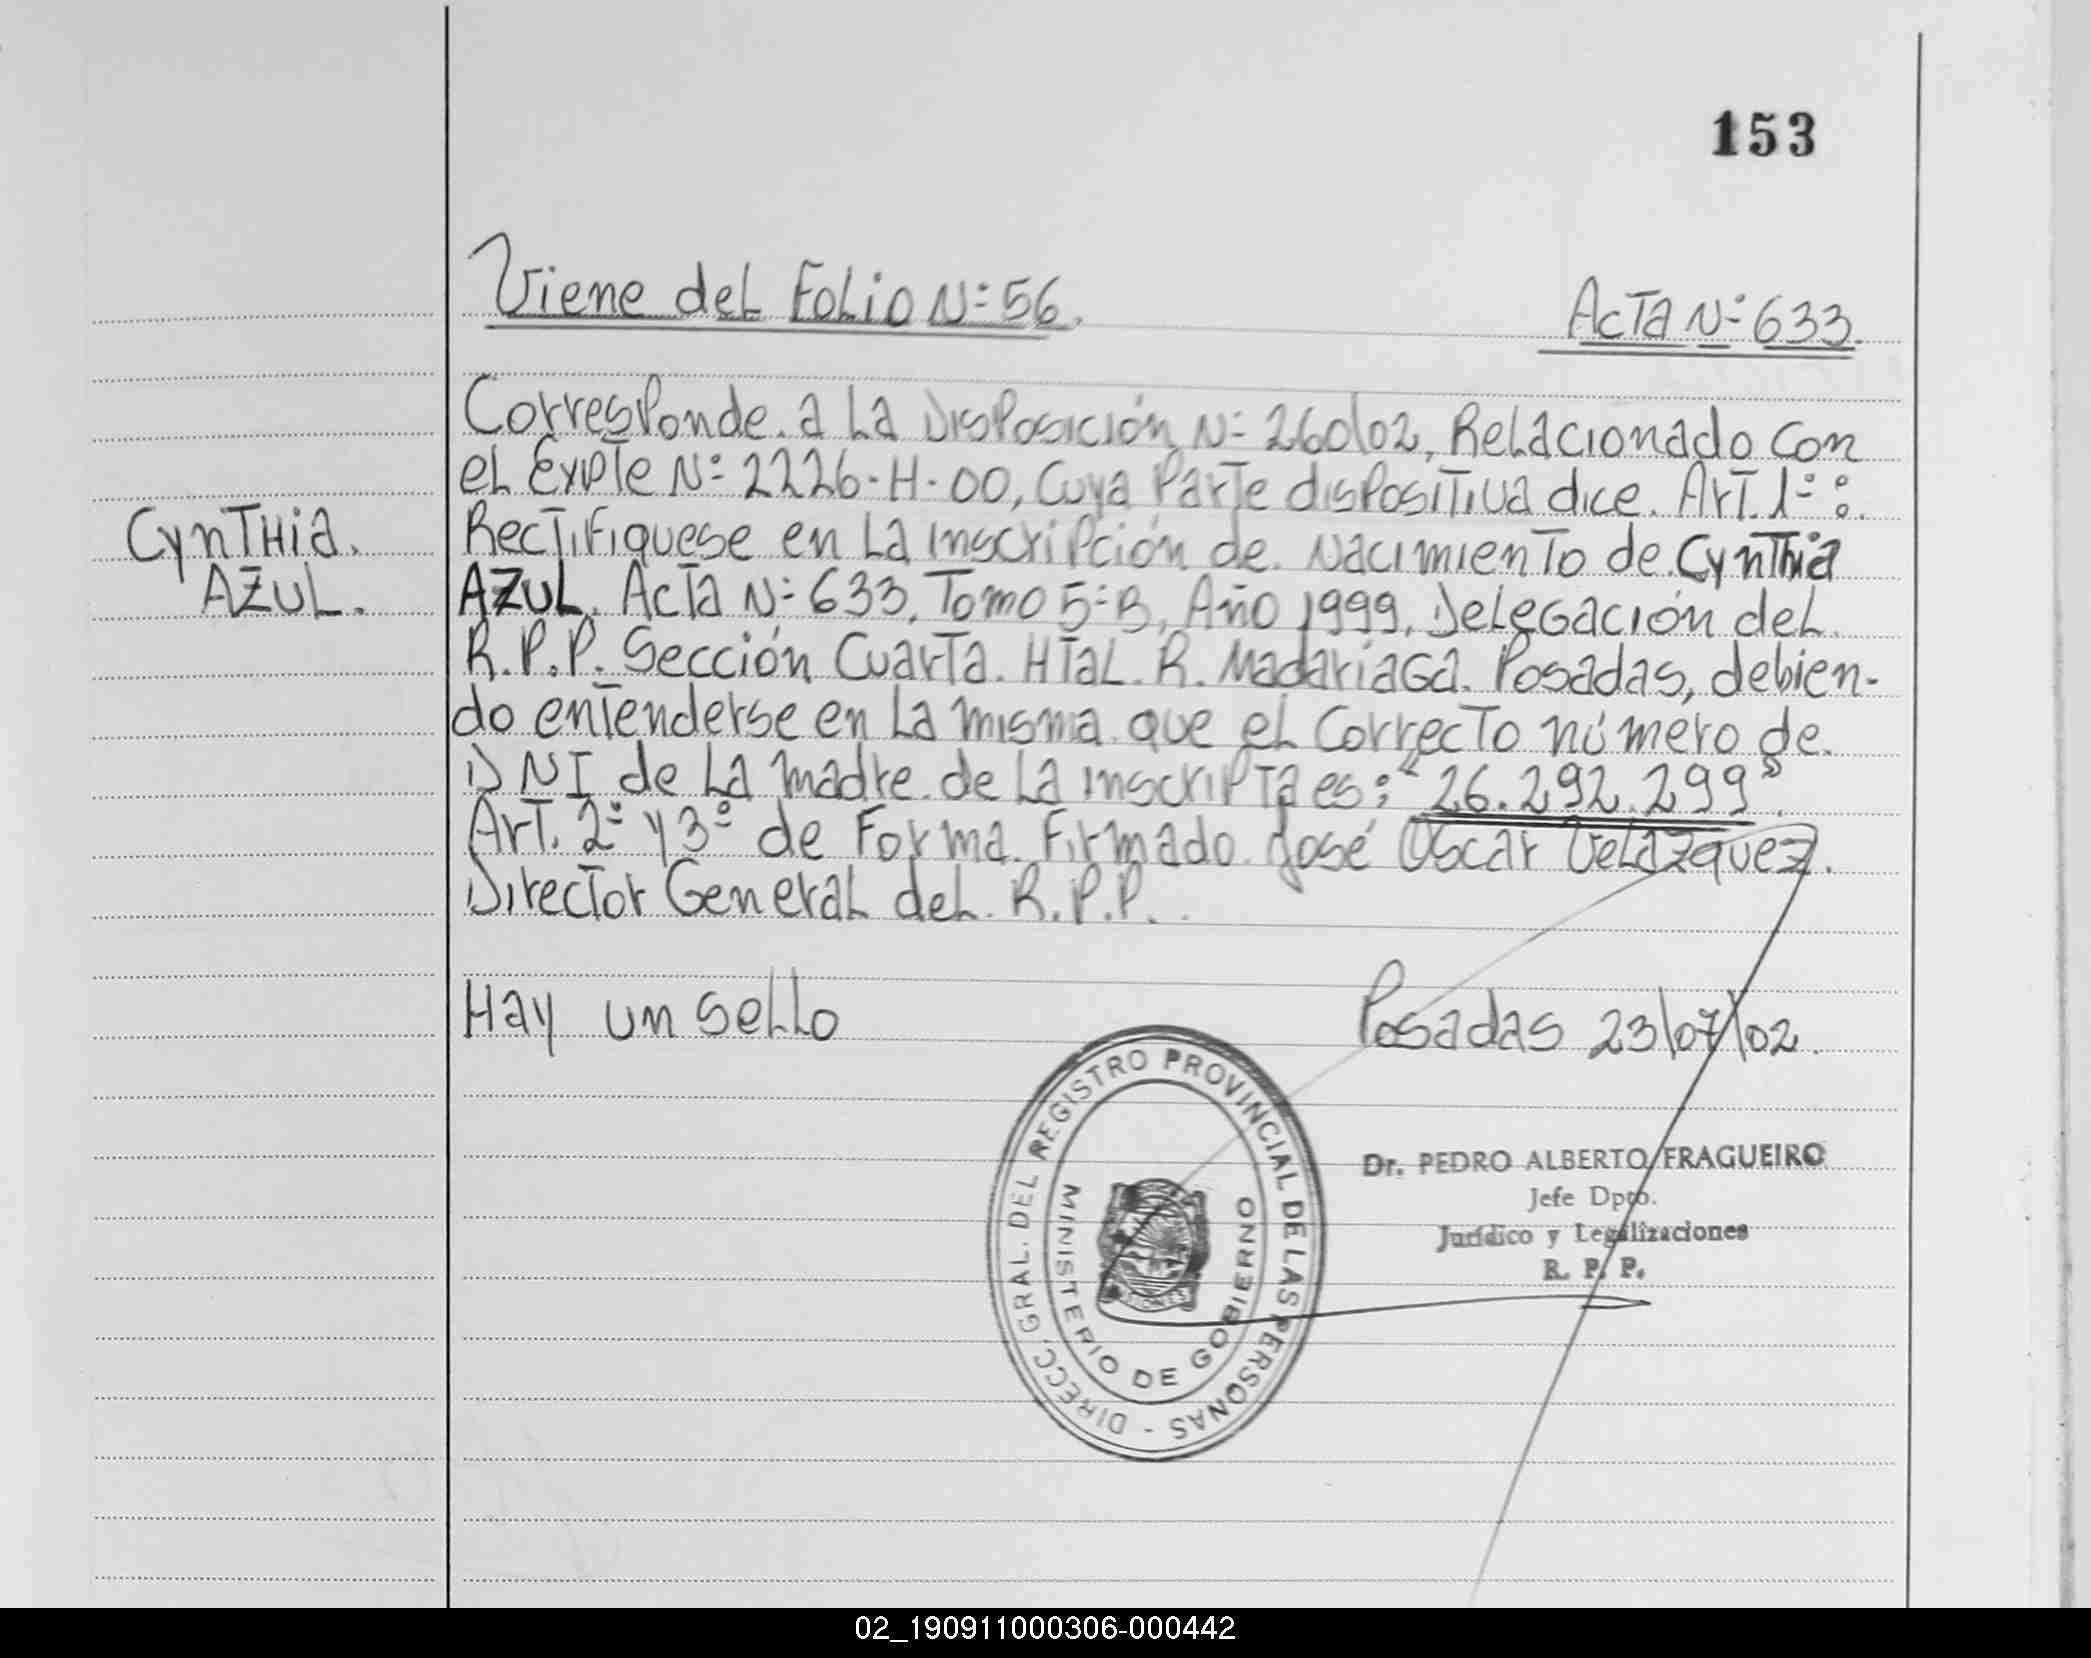 153
Viene del Folio N:56.
Acta N:633.
Corresponde a La Disposición N: 260/02, Relacionado Con
eL Expte N: 2226-H-00, Cuya Parte dispositiva dice. Art. 1º:
Cynthia.
Rectifíquese en La inscripción de Nacimiento de Cynthia
AZUL.
AZUL. Acta N: 633, Tomo 5:B, Año 1999, Delegación del
R.P.P. Sección Cuarta. HTaL. R. Madariaga. Posadas, debien-
do entenderse en La misma que eL Correcto número de
DNI de La madre de La inscripta es: "26.292.299"
Art. 2º y 3º de Forma. Firmado. José Oscar Velázquez.
Director General del R.P.P.
Hay un sello
Posadas 23/07/02.
DIRECC. GRAL. DEL REGISTRO PROVINCIAL DE LAS PERSONAS -
MINISTERIO DE GOBIERNO
Dr. PEDRO ALBERTO FRAGUEIRO
Jefe Dpto.
Jurídico y Legalizaciones
R. P. P.
02_190911000306-000442